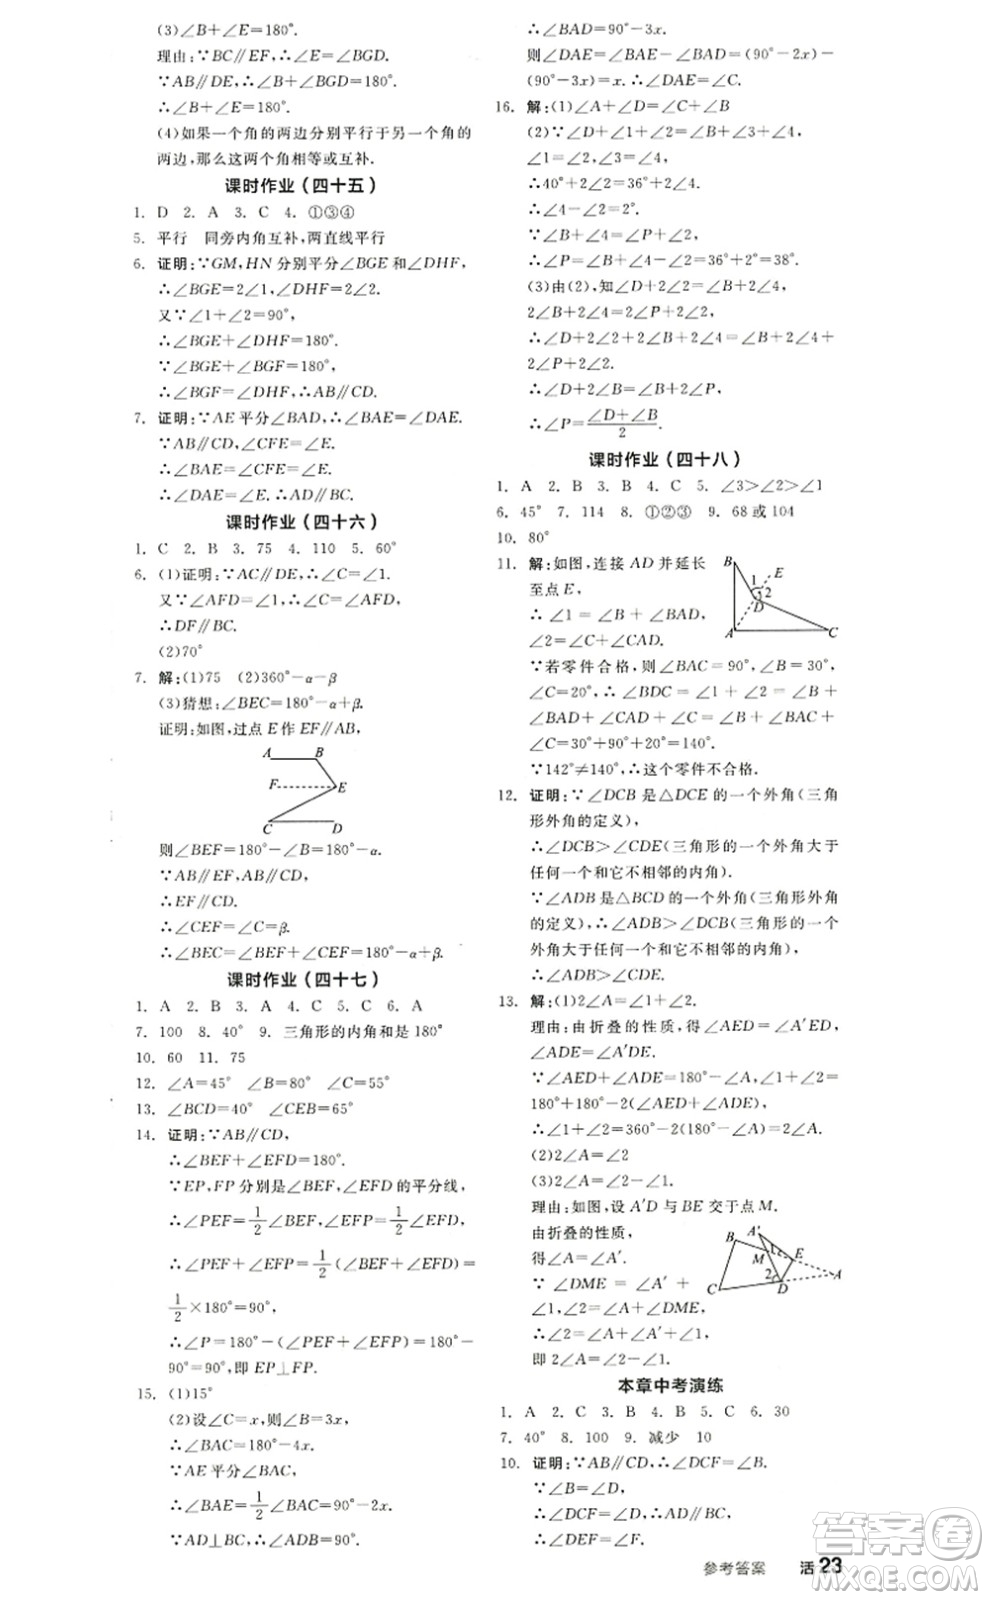 (3)∠B+∠E=180°.
理由:∵BC∥EF,∴∠E=∠BGD.
∵AB∥DE,∴∠B+∠BGD=180°.
∴∠B+∠E=180°.
(4)如果一个角的两边分别平行于另一个角的
两边,那么这两个角相等或互补.
课时作业(四十五)
1. D 2. A 3. C 4. ①③④
5. 平行 同旁内角互补,两直线平行
6. 证明:∵GM,HN分别平分∠BGE和∠DHF,
∴∠BGE=2∠1,∠DHF=2∠2.
又∵∠1+∠2=90°,
∴∠BGE+∠DHF=180°.
∵∠BGE+∠BGF=180°,
∴∠BGF=∠DHF,∴AB∥CD.
7. 证明:∵AE平分∠BAD,∴∠BAE=∠DAE.
∵AB∥CD,∠CFE=∠E,
∴∠BAE=∠CFE=∠E.
∴∠DAE=∠E.∴AD∥BC.
课时作业(四十六)
1. C 2. B 3. 75 4. 110 5. 60°
6. (1)证明:∵AC∥DE,∴∠C=∠1.
又∵∠AFD=∠1,∴∠C=∠AFD,
∴DF∥BC.
(2)70°
7. 解:(1)75 (2)360°-α-β
(3)猜想:∠BEC=180°-α+β.
证明:如图,过点E作EF∥AB,
A B
F E
C D
则∠BEF=180°-∠B=180°-α.
∵AB∥EF,AB∥CD,
∴EF∥CD.
∴∠CEF=∠C=β.
∴∠BEC=∠BEF+∠CEF=180°-α+β.
课时作业(四十七)
1. A 2. B 3. A 4. C 5. C 6. A
7. 100 8. 40° 9. 三角形的内角和是180°
10. 60 11. 75
12. ∠A=45° ∠B=80° ∠C=55°
13. ∠BCD=40° ∠CEB=65°
14. 证明:∵AB∥CD,
∴∠BEF+∠EFD=180°.
∵EP,FP分别是∠BEF,∠EFD的平分线,
∴∠PEF=1/2∠BEF,∠EFP=1/2∠EFD,
∴∠PEF+∠EFP=1/2(∠BEF+∠EFD)=
1/2×180°=90°,
∴∠P=180°-(∠PEF+∠EFP)=180°-
90°=90°,即EP⊥FP.
15. (1)15°
(2)设∠C=x,则∠B=3x,
∴∠BAC=180°-4x.
∵AE平分∠BAC,
∴∠BAE=1/2∠BAC=90°-2x.
∵AD⊥BC,∴∠ADB=90°,
∴∠BAD=90°-3x.
则∠DAE=∠BAE-∠BAD=(90°-2x)-
(90°-3x)=x.∴∠DAE=∠C.
16. 解:(1)∠A+∠D=∠C+∠B
(2)∵∠D+∠1=∠P+∠3,
∠B+∠4=∠P+∠2,
∴∠D+∠1+∠B+∠4=∠P+∠3+∠P+∠2,
∵∠1=∠2,∠3=∠4,
∴2∠P=∠D+∠B
∠P=38°.
(3)由(2),知∠D+2∠2=∠B+2∠4,
2∠B+2∠4=2∠P+2∠2,
∴∠D+2∠2+2∠B+2∠4=∠B+2∠4+
2∠P+2∠2.
∴∠D+∠B=2∠P,
∴∠P=(∠D+∠B)/2.
课时作业(四十八)
1. A 2. B 3. B 4. C 5. ∠3>∠2>∠1
6. 45° 7. 114 8. ①②③ 9. 68或104
10. 80°
11. 解:如图,连接AD并延长
至点E,
∴∠1=∠B+∠BAD,
∠2=∠C+∠CAD.
∵若零件合格,则∠BAC=90°,∠B=30°,
∠C=20°,∴∠BDC=∠1+∠2=∠B+
∠BAD+∠CAD+∠C=∠B+∠BAC+
∠C=30°+90°+20°=140°.
∵142°≠140°,∴这个零件不合格.
B E
1 2
D
A C
12. 证明:∵∠DCB是△DCE的一个外角(三角
形外角的定义),
∴∠DCB>∠CDE(三角形的一个外角大于
任何一个和它不相邻的内角).
∵∠ADB是△BCD的一个外角(三角形外角
的定义),∴∠ADB>∠DCB(三角形的一个
外角大于任何一个和它不相邻的内角),
∴∠ADB>∠CDE.
13. 解:(1)2∠A=∠1+∠2.
理由:由折叠的性质,得∠AED=∠A′ED,
∠ADE=∠A′DE.
∵∠AED+∠ADE=180°-∠A,∠1+∠2=
180°+180°-2(∠AED+∠ADE),
∴∠1+∠2=360°-2(180°-∠A)=2∠A.
(2)2∠A=∠2
(3)2∠A=∠2-∠1.
理由:如图,设A′D与BE交于点M.
由折叠的性质,
得∠A=∠A′.
∵∠DME=∠A′+
∠1,∠2=∠A+∠DME,
∴∠2=∠A+∠A′+∠1,
即2∠A=∠2-∠1.
B A′
1 E
M
2
C D A
本章中考演练
1. A 2. C 3. B 4. B 5. C 6. 30
7. 40° 8. 100 9. 减少 10
10. 证明:∵AB∥CD,∴∠DCF=∠B.
∵∠B=∠D,
∴∠DCF=∠D,∴AD∥BC,
∴∠DEF=∠F.
参考答案 活23
答案卷
MXQE.COM